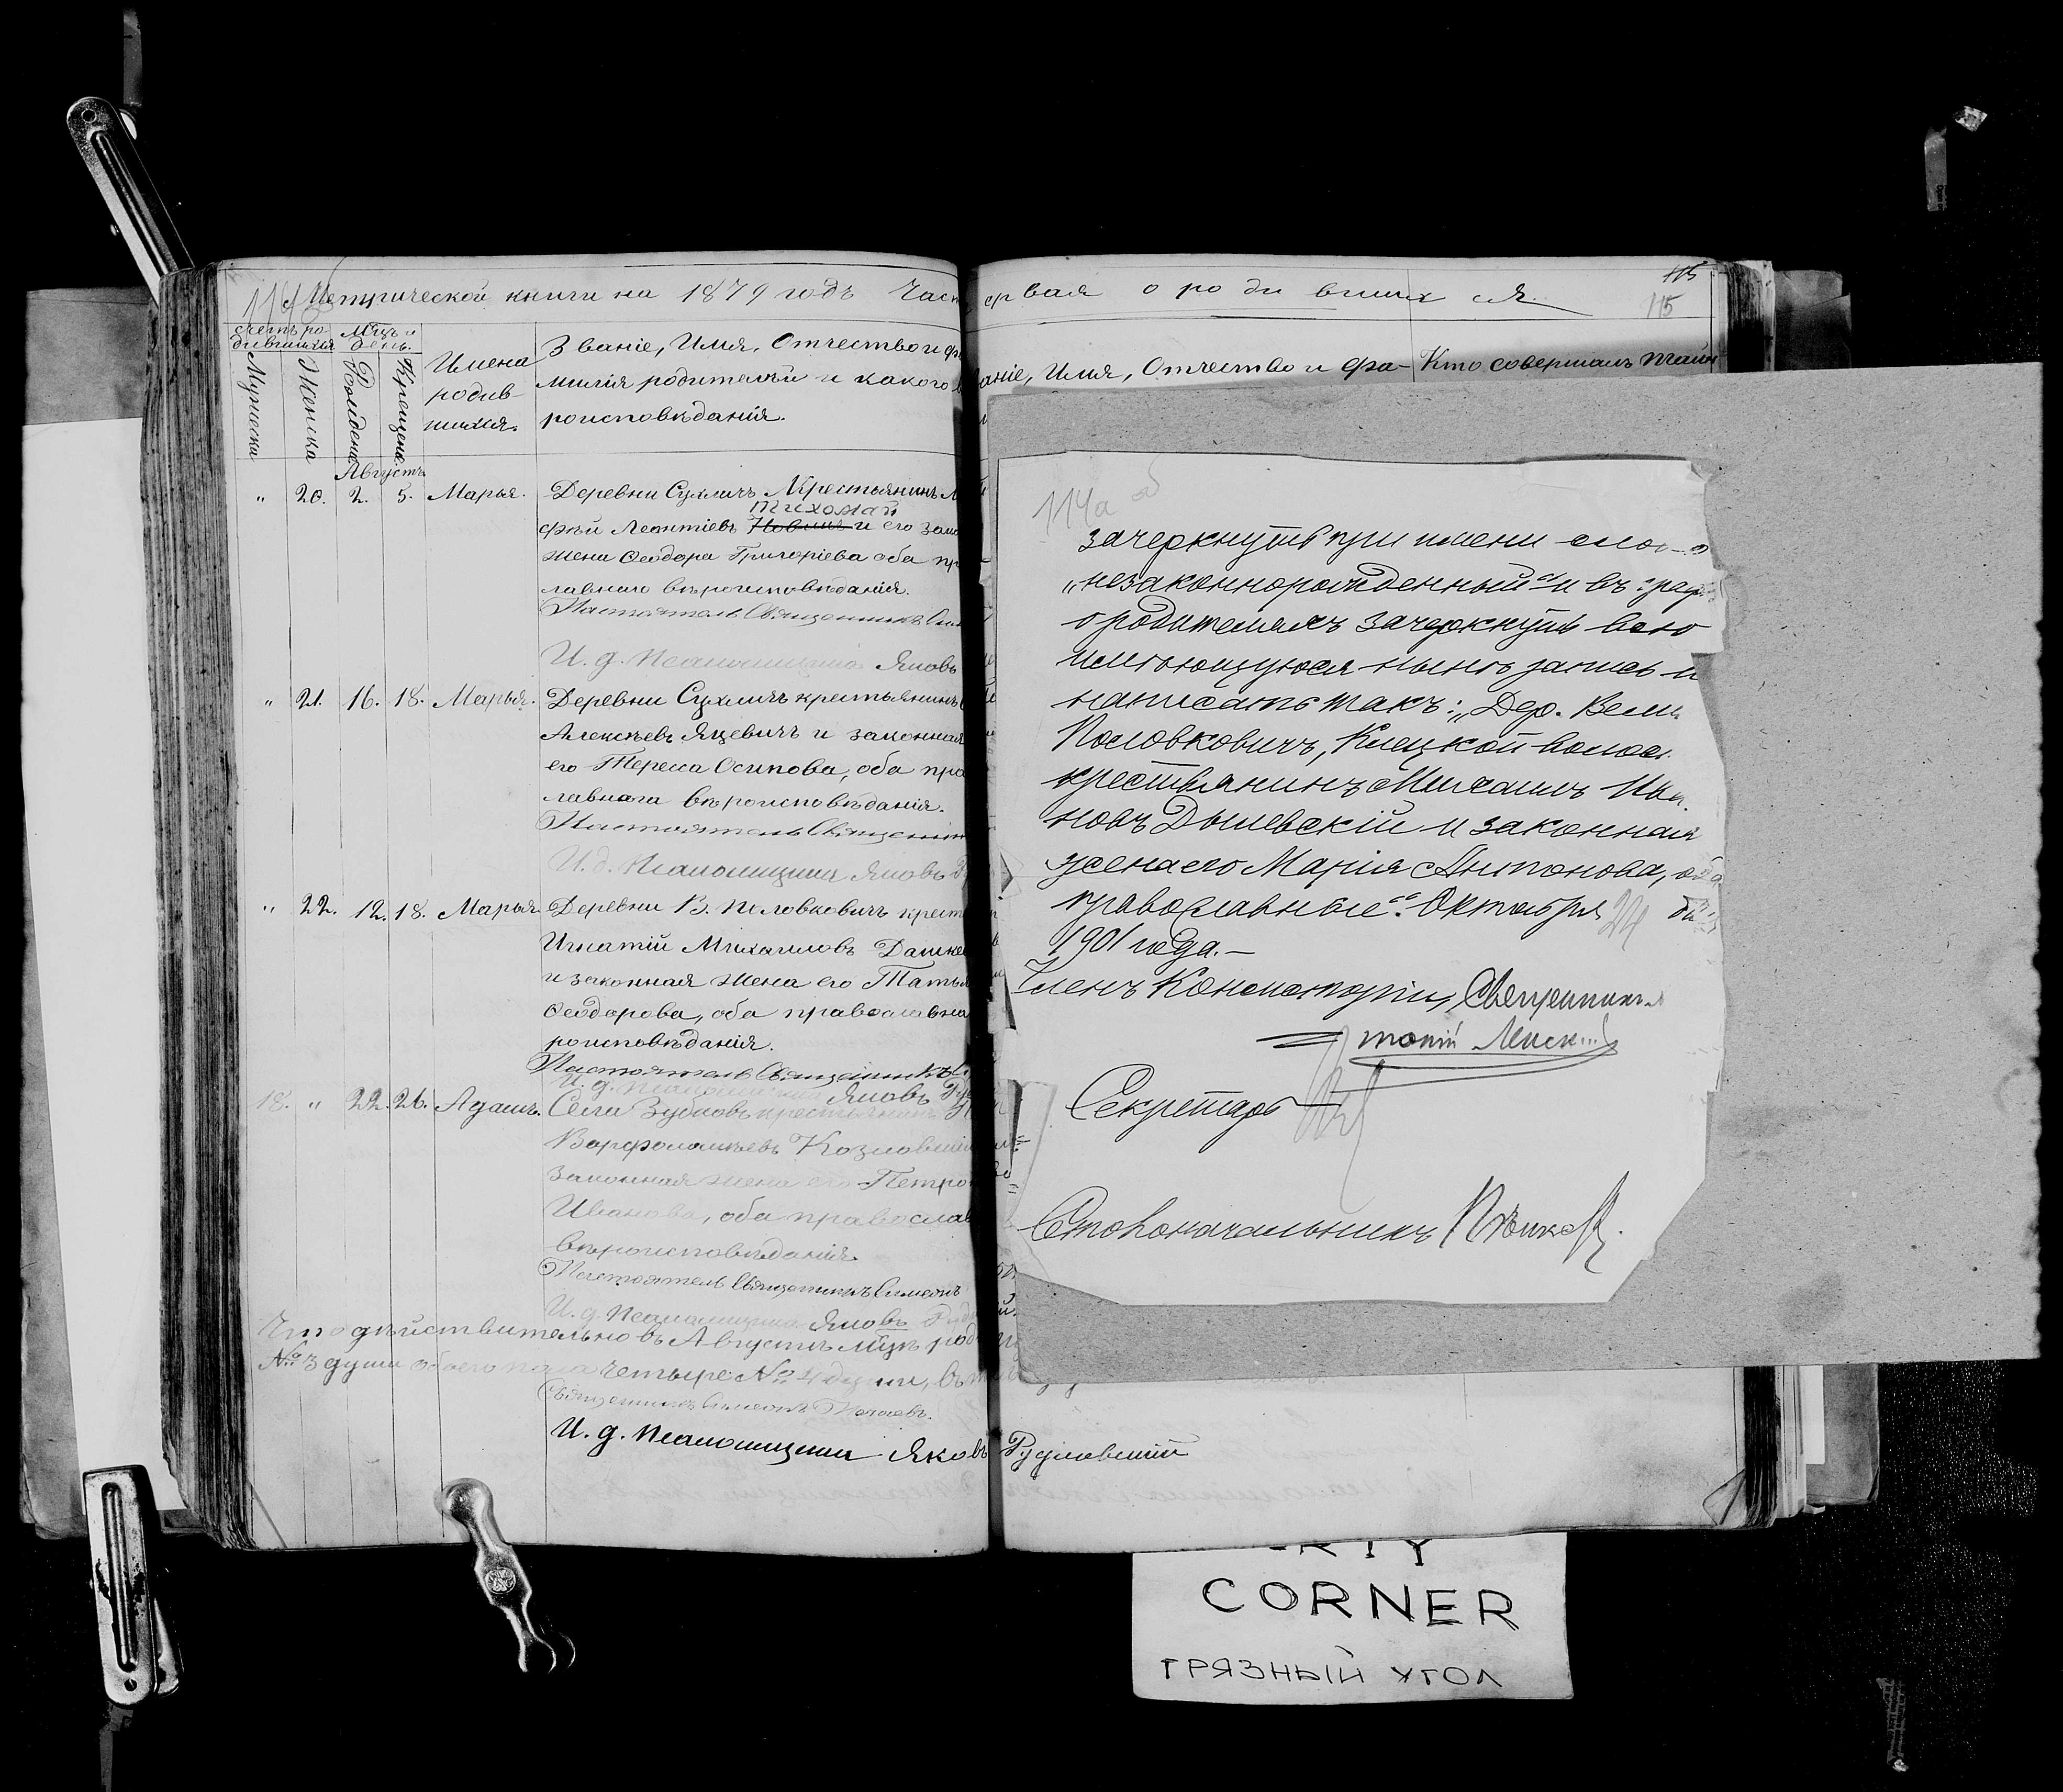 114 об
Метрической книги на 1879 годъ Част
счетъ ро
дившихся
Мцъ и
день.
Мужеска
Женска
Рожденія
Крещенія
Имена
родив
шихся.
Званіе, Имя, Отчество и фа
милія родителей и какого в
роисповѣданія.
Августъ
" 20. 2. 5. Марья. Деревни Сухличъ Крестьянинъ
Тихомай
фѣй Леонтіевъ Новикъ и его зако
жена Ѳеодора Григоріева оба пр
лавнаго вѣроисповѣданія.
Настоятель Священникъ Сим
И. д. Псаломщика Яковъ
" 21. 16. 18. Марья. Деревни Сухличъ крестьянинъ
Алексѣевъ Яцевичъ и законная
его Тереса Осипова, оба пра
лавнаго вѣроисповѣданія.
Настоятель Священн
И. д. Псаломщика Яковъ Р
" 22. 12. 18. Марья. Деревни В. Половковичъ крест
Игнатій Михаиловъ Дашке
и законная жена его Татья
Ѳеодорова, оба православна
роисповѣданія.
Настоятель Священникъ С
И. д. Псаломщика Яковъ Ру
18. " 22. 26. Адамъ. Села Зубковъ крестьянинъ
Варфоломѣевъ Козловскій
законная жена его Петро
Иванова, оба правосла
вѣроисповѣданія.
Настоятель Священникъ Симеонъ
И. д. Псаломщика Яковъ Руд
Что дѣйствительно въ Августѣ мцѣ род
№ 3 души обоего пола четыре № 4 души, въ т
Священникъ Симеонъ
И. д. Псаломщика Яковъ Рудковскій
ервая о родившихся.
115
115
аніе, Имя, Отчество и фа-
Кто совершалъ таин
114а об
зачеркнуть при имени слово
„незаконнорожденный" и въ граф
о родителяхъ зачеркнуть всю
имѣющуюся нынѣ запись и
написать такъ: „Дер. Вели
Половковичъ, Клецкой волос.
крестьянинъ Михаилъ Ива
новъ Дышевскій и законная
жена его Марія Антонова, оба
православные". Октября 24 дня
1901 года.—
Членъ Консисторіи, Священникъ
Секретарь
Столоначальникъ
CORNER
ГРЯЗНЫЙ УГОЛ